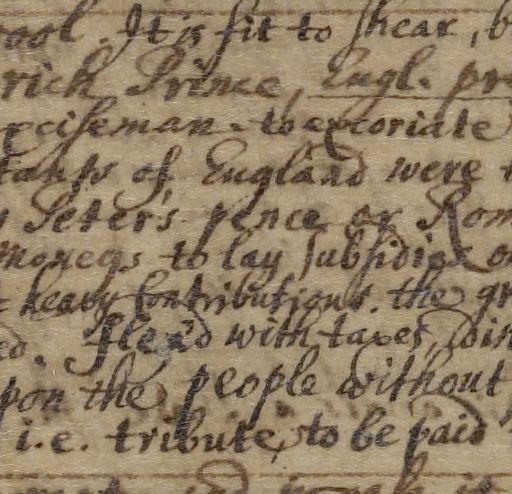 ool. It is fit to shear, b
rich Prince, Engl. pr
xciseman. to excoriate
of England were t
Peter's pence or Rom
moneys to lay subsidies o
heavy Contributions. the gr
ed. flea'd with taxes, din
pon the people without
i.e. tribute, to be paid